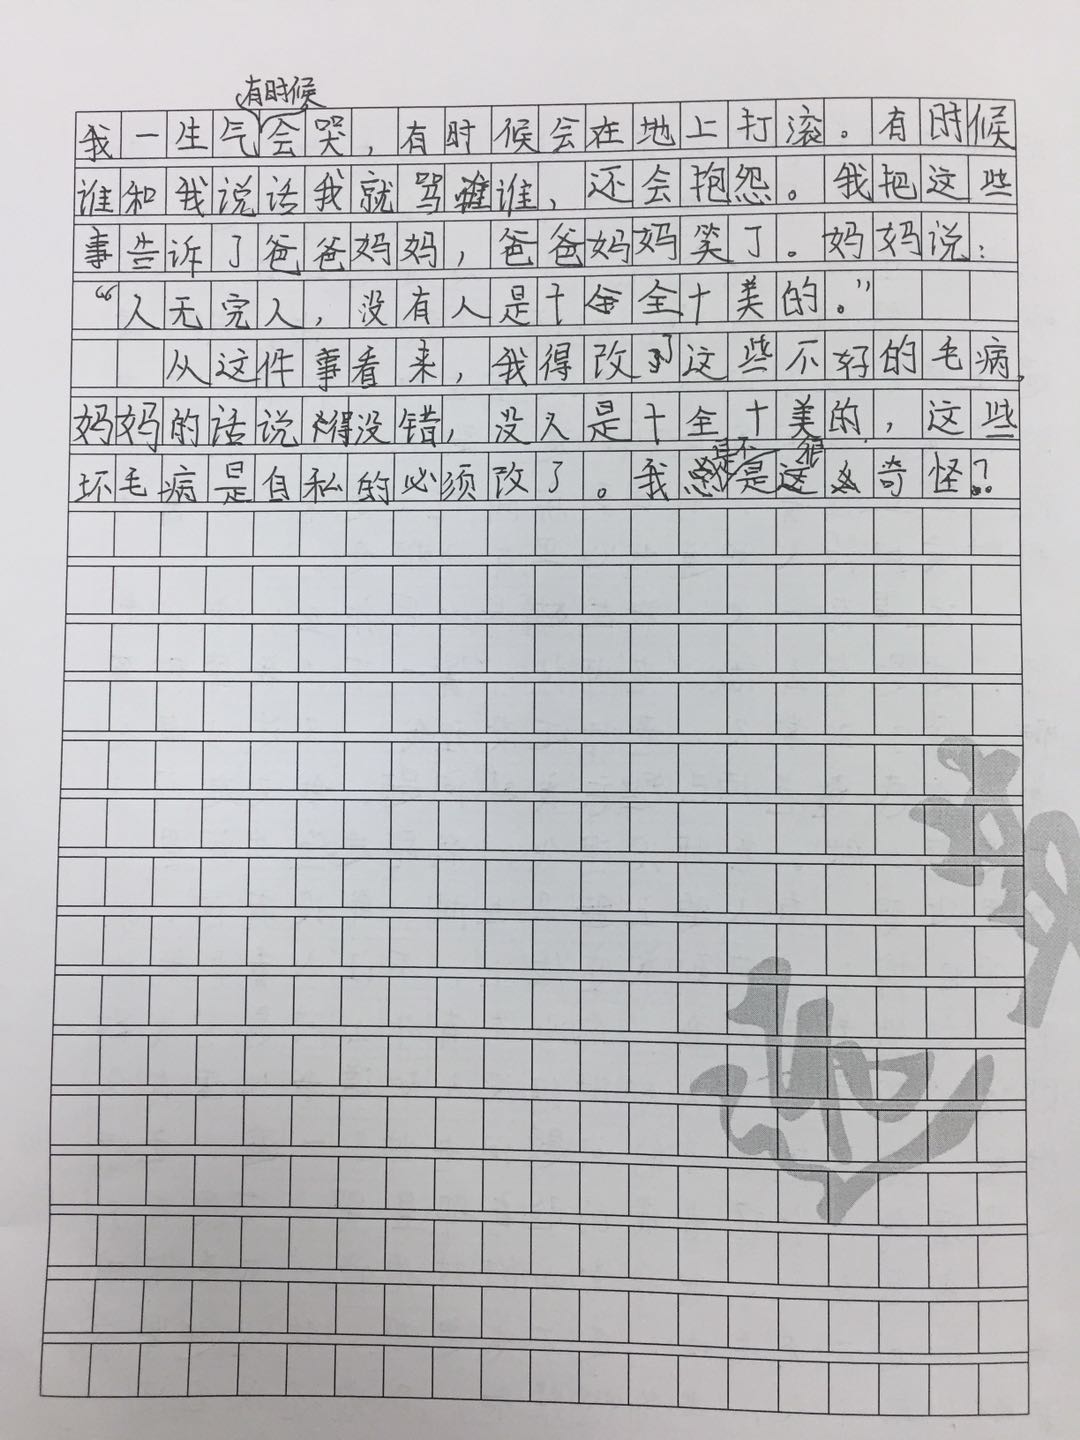 我一生气有时候会哭，有时候会在地上打滚。有时候
谁和我说话我就骂谁，还会抱怨。我把这些
事告诉了爸爸妈妈，爸爸妈妈笑了。妈妈说：
“人无完人，没有人是十全十美的。”
从这件事看来，我得改了这些不好的毛病，
妈妈的话说得没错，没人是十全十美的，这些
坏毛病是自私的必须改了。我是不是很奇怪？